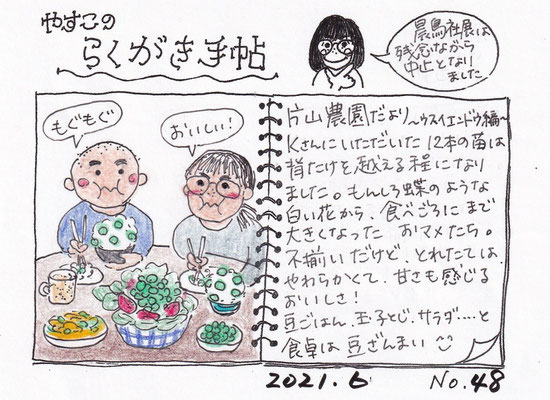 やすこの
らくがき手帖
晨鳥社展は
残念ながら
中止となり
ました
もぐもぐ
おいしい!
片山農園だより〜ウスイエンドウ編〜
Kさんにいただいた12本の苗は
背たけを越える程になり
ました。もんしろ蝶のような
白い花から、食べごろにまで
大きくなった おマメたち。
不揃いだけど、とれたては、
やわらかくて、甘さも感じる
おいしさ!
豆ごはん、玉子とじ、サラダ…と
食卓は豆ざんまい
2021.6 No.48